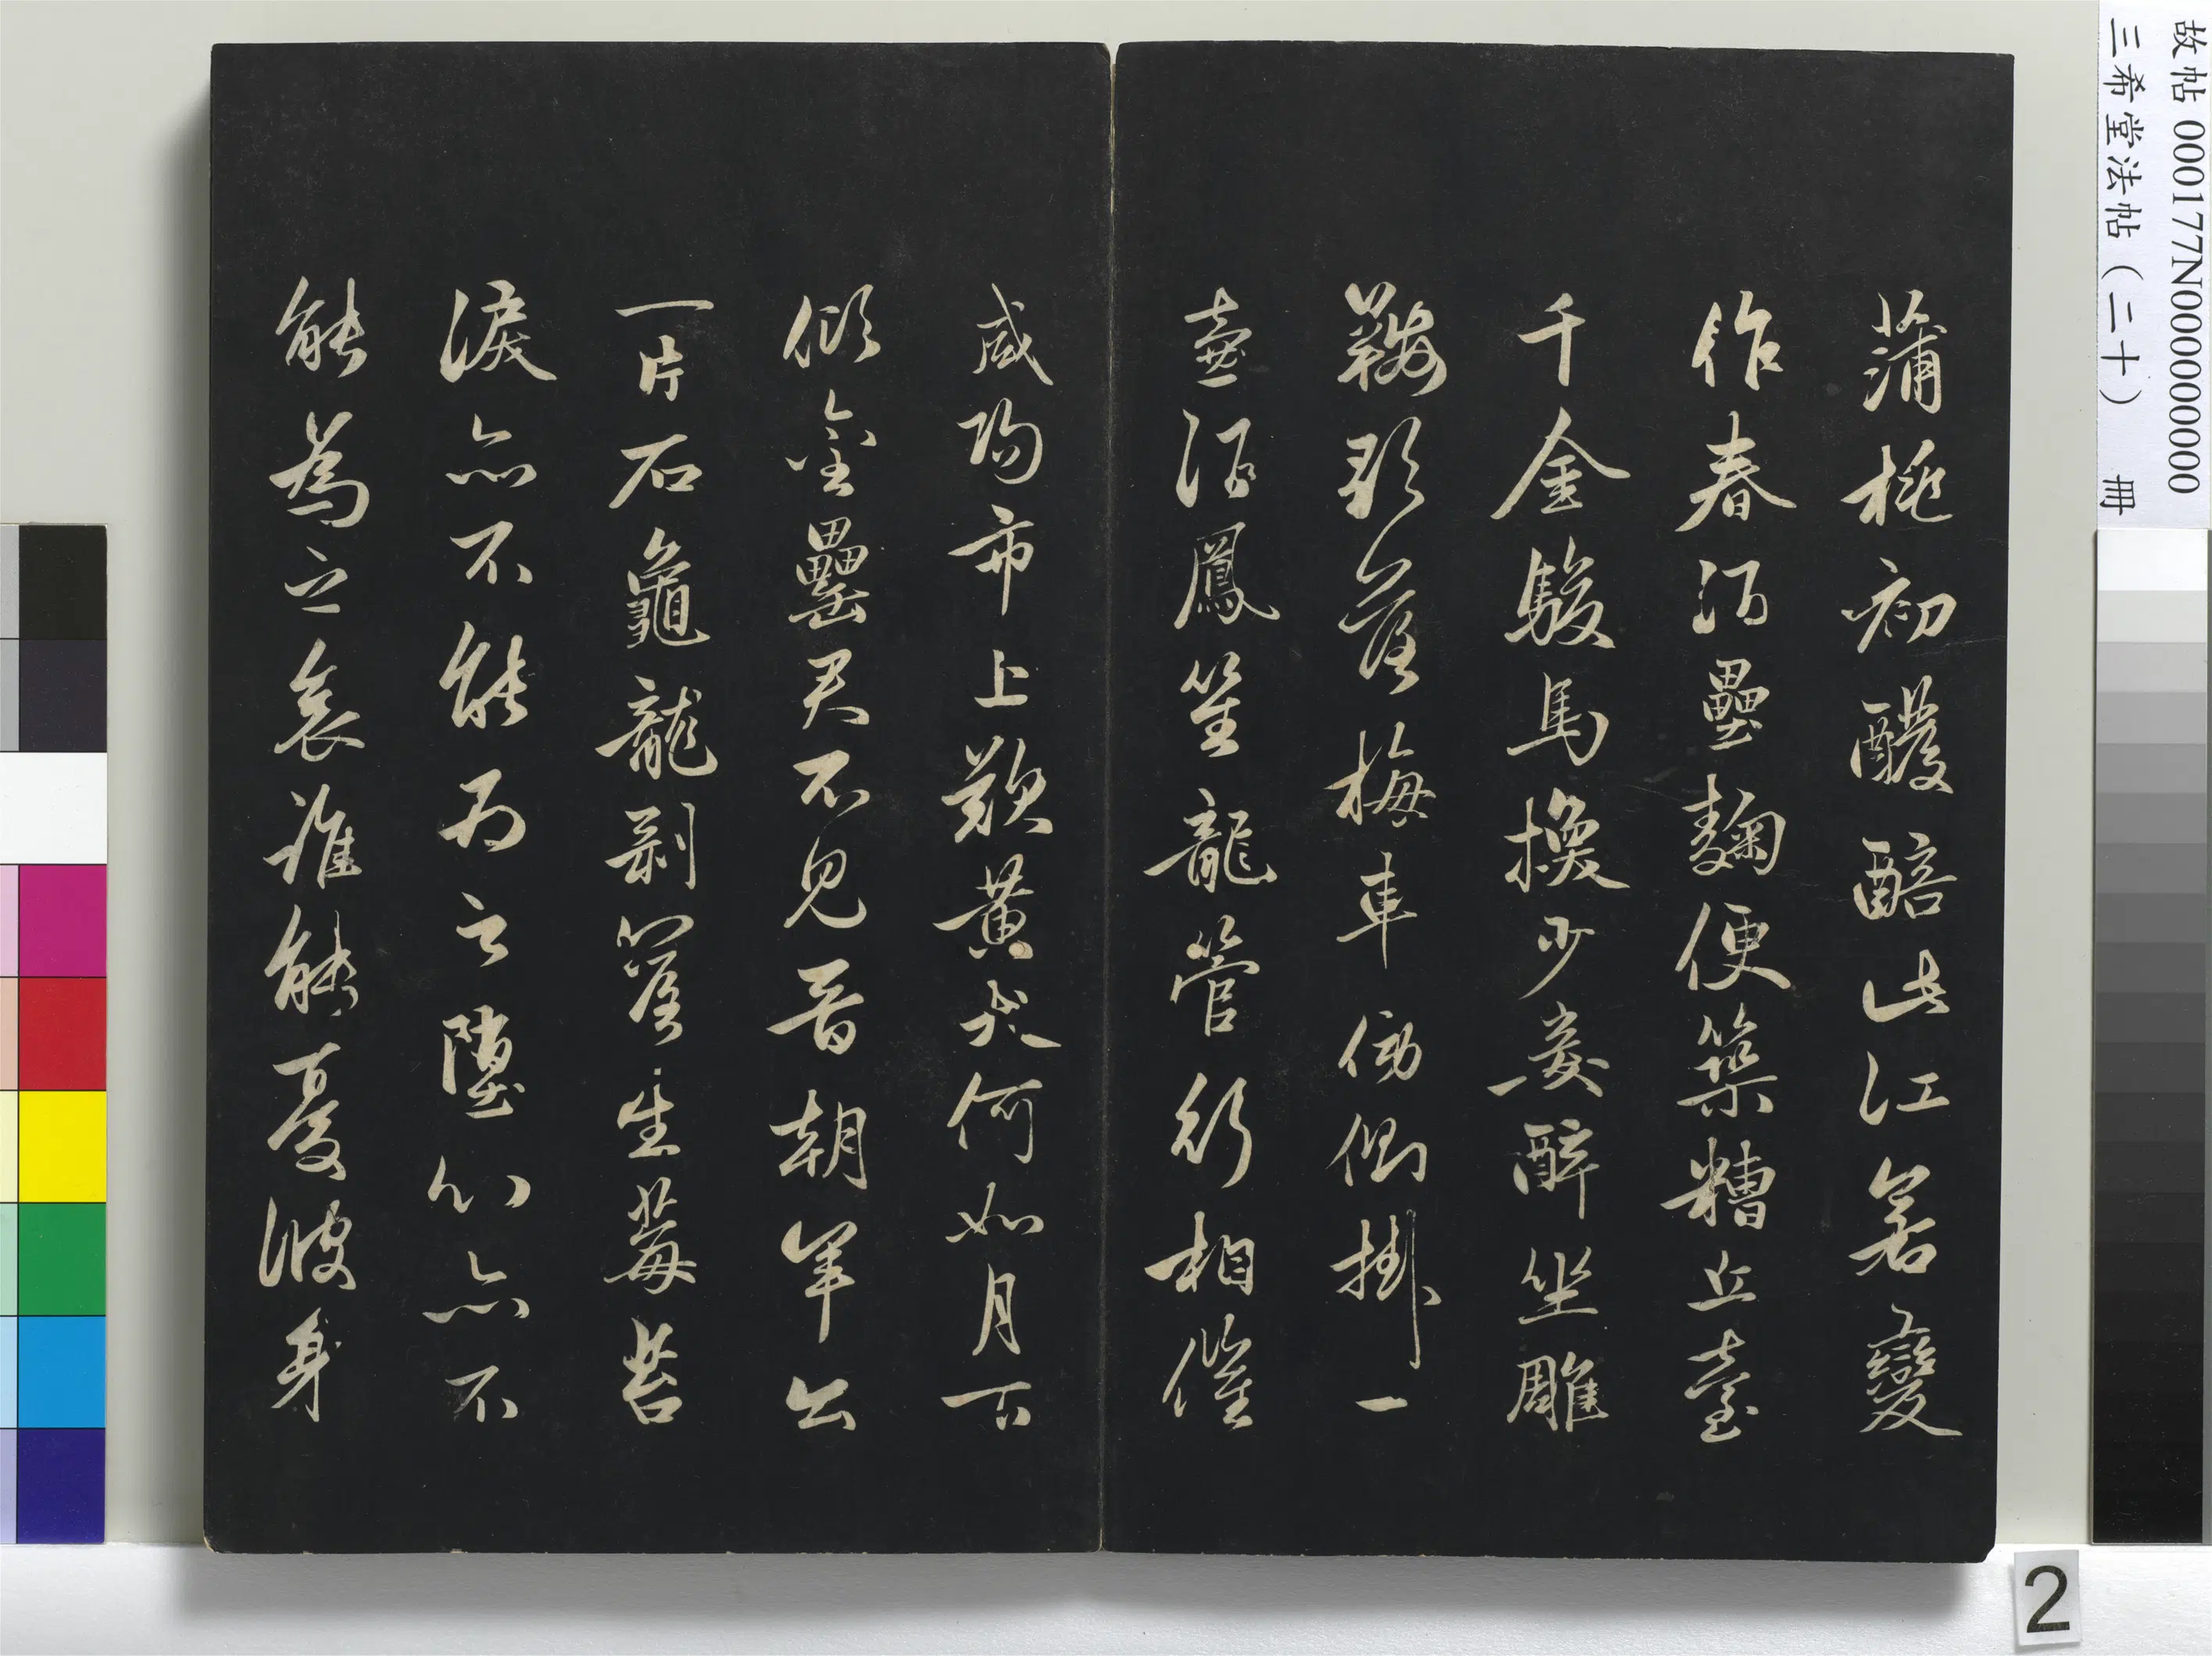 蒲桃初醱醅此江若變
作春酒壘麴便築糟丘臺
千金駿馬換少妾醉坐雕
鞍歌落梅車傍側掛一
壺酒鳳笙龍管行相催
咸陽市上歎黃犬何如月下
傾金罍君不見晉朝羊公
一片石龜龍剝落生莓苔
淚亦不能為之墮心亦不
能為之哀誰能憂彼身
故帖000177N000000000
三希堂法帖（二十） 冊
2